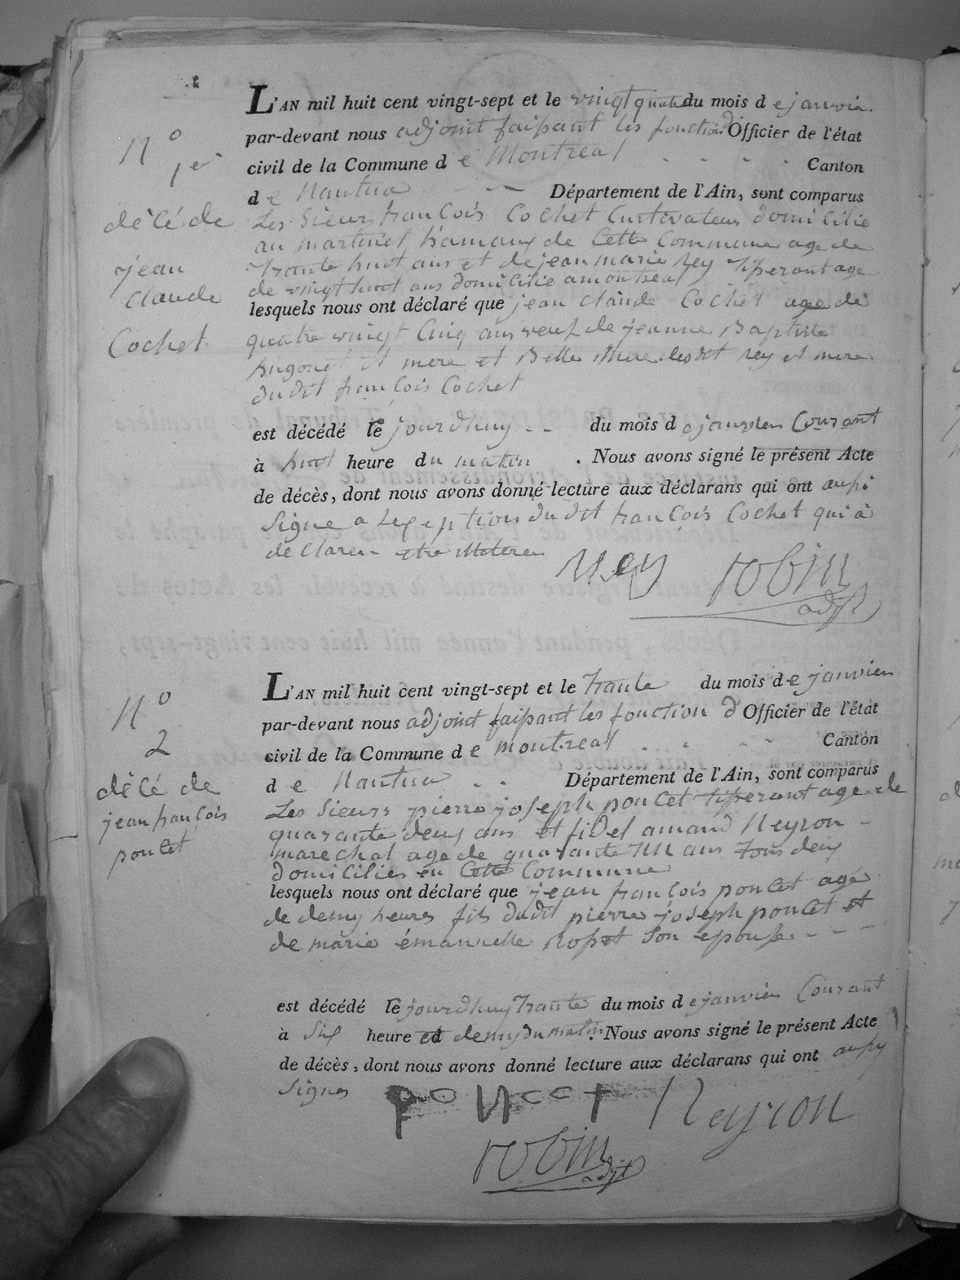 N° 1er
décé de
jean
claude
Cochet
L'AN mil huit cent vingt-sept et le vingt quatre du mois de janvier
par-devant nous adjoint faisant les fonction d'Officier de l'état
civil de la Commune de Montreal Canton
de Nantua Département de l'Ain, sont comparus
Les Sieurs francois Cochet Cultivateur domicilié
au martinet hamaux de Cette Commune age de
trante huit ans et de jean marie rey tiserant age
de vingt huit ans domicilié a montreal
lesquels nous ont déclaré que jean Claude Cochet age de
quatre vingt Cinq ans veuf de jeanne Baptiste
et mere et Belle Mere desdit rey et mere
dudit francois Cochet
est décédé le jourdhuy du mois de janvier Courant
à huit heure du matin. Nous avons signé le présent Acte
de décès, dont nous avons donné lecture aux déclarans qui ont aussi
Signe a Lexeption dudit francois Cochet qui a
de Clarer
rey robin
adjt
N° 2
décé de
jean francois
poncet
L'AN mil huit cent vingt-sept et le trante du mois de janvier
par-devant nous adjoint faisant les fonction d'Officier de l'état
civil de la Commune de montreal Canton
de Nantua Département de l'Ain, sont comparus
Les Sieurs pierre joseph poncet tisserant age de
quarante deux ans et fidel amand Neyron
marechal age de quarante un ans tous deux
domiciliés en Cette Commune
lesquels nous ont déclaré que jean francois poncet age
de demy heures fils dudit pierre joseph poncet et
de marie émanuelle Rosset Son epouse
est décédé le jourdhuy trante du mois de janvier Courant
à Six heure et demy du matin. Nous avons signé le présent Acte
de décès, dont nous avons donné lecture aux déclarans qui ont aussy
Signes poncet Neyron
robin
adjt